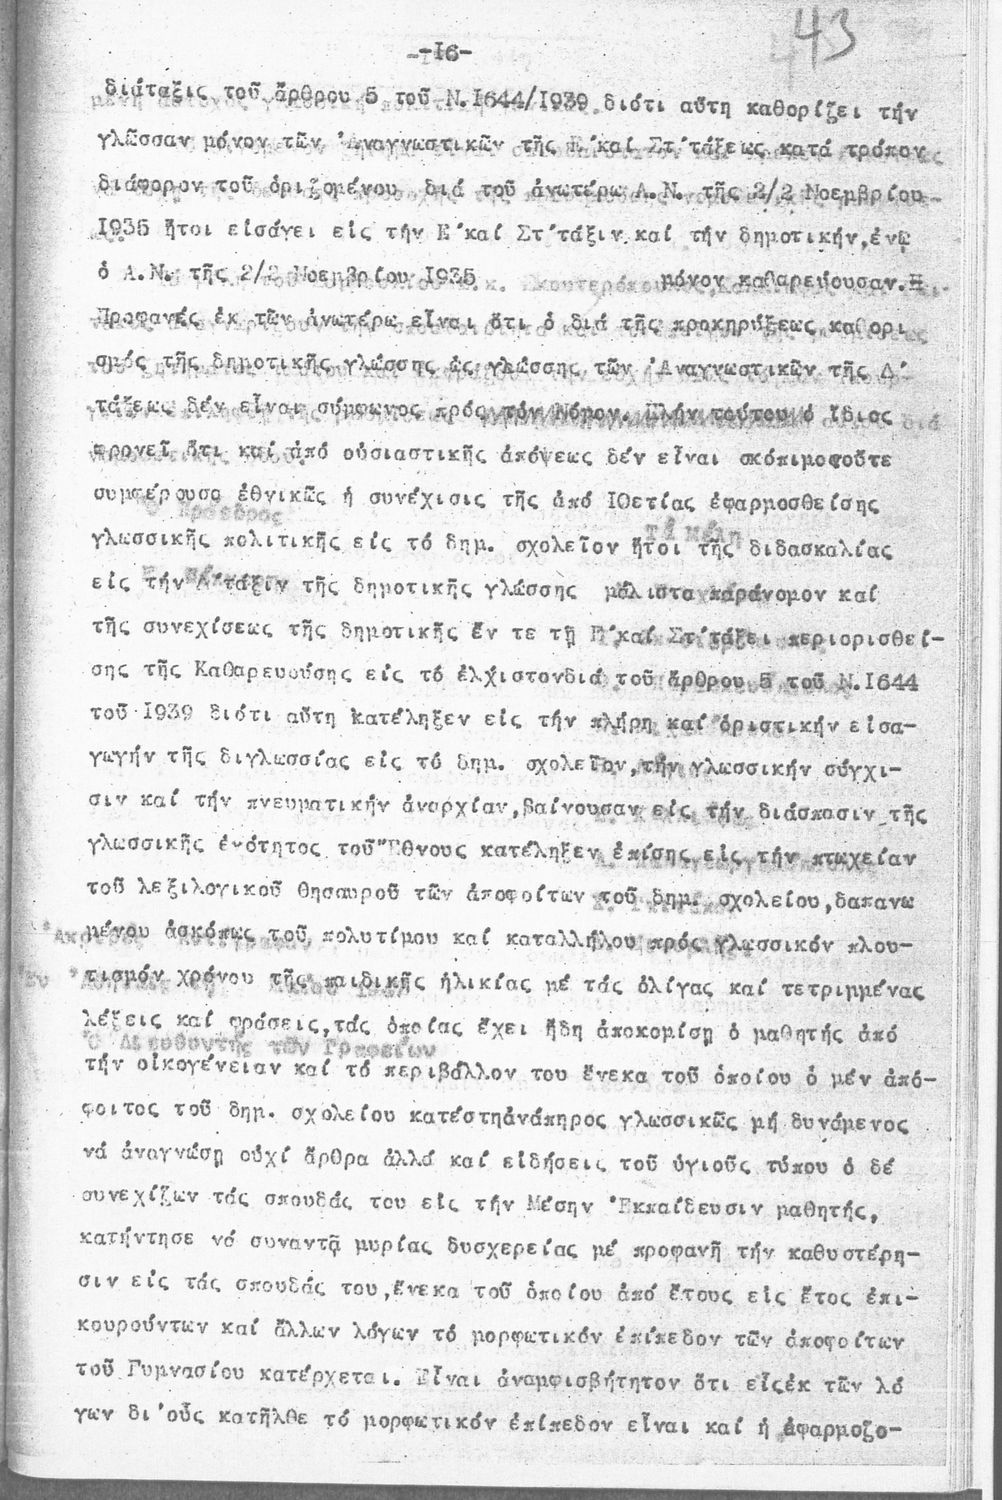 43
-16-
διάταξις τοῦ ἄρθρου 5 τοῦ Ν.Ι644/Ι939 διότι αὕτη καθορίζει τήν
γλῶσσαν μόνον τῶν Ἀναγνωστικῶν τῆς Ε΄καί Στ΄τάξεως κατά τρόπον
διάφορον τοῦ ὁριζομένου διά τοῦ ἀνωτέρω Α.Ν. τῆς 2/2 Νοεμβρίου
Ι935 ἤτοι εἰσάγει εἰς τήν Ε΄καί Στ΄τάξιν καί τήν δημοτικήν,ἐνῶ
ὁ Α.Ν. τῆς 2/2 Νοεμβρίου Ι935 μόνον καθαρεύουσαν.
Προφανές ἐκ τῶν ἀνωτέρω εἶναι ὅτι ὁ διά τῆς προκηρύξεως καθορι
σμός τῆς δημοτικῆς γλώσσης ὡς γλώσσης τῶν Ἀναγνωστικῶν τῆς Δ΄
τάξεως δέν εἶναι σύμφωνος πρός τόν Νόμον. Πλήν τούτου ὁ ἴδιος
φρονεῖ ὅτι καί ἀπό οὐσιαστικῆς ἀπόψεως δέν εἶναι σκόπιμοςοὔτε
συμφέρουσα ἐθνικῶς ἡ συνέχισις τῆς ἀπό Ι0ετίας ἐφαρμοσθείσης
γλωσσικῆς πολιτικῆς εἰς τό δημ. σχολεῖον ἤτοι τῆς διδασκαλίας
εἰς τήν Δ΄τάξιν τῆς δημοτικῆς γλώσσης μάλιστα παράνομον καί
τῆς συνεχίσεως τῆς δημοτικῆς ἔν τε τῇ Ε΄καί Στ΄τάξει περιορισθεί-
σης τῆς Καθαρευούσης εἰς τό ἐλχιστονδιά τοῦ ἄρθρου 5 τοῦ Ν.Ι644
τοῦ Ι939 διότι αὕτη κατέληξεν εἰς τήν πλήρη καί ὁριστικήν εἰσα-
γωγήν τῆς διγλωσσίας εἰς τό δημ. σχολεῖον,τήν γλωσσικήν σύγχι-
σιν καί τήν πνευματικήν ἀναρχίαν,βαίνουσαν εἰς τήν διάσπασιν τῆς
γλωσσικῆς ἑνότητος τοῦ Ἔθνους κατέληξεν ἐπίσης εἰς τήν πτωχείαν
τοῦ λεξιλογικοῦ θησαυροῦ τῶν ἀποφοίτων τοῦ δημ. σχολείου,δαπανω
μένου ἀσκόπως τοῦ πολυτίμου καί καταλλήλου πρός γλωσσικόν πλου-
τισμόν χρόνου τῆς παιδικῆς ἡλικίας μέ τάς ὀλίγας καί τετριμμένας
λέξεις καί φράσεις,τάς ὁποίας ἔχει ἤδη ἀποκομίσῃ ὁ μαθητής ἀπό
τήν οἰκογένειαν καί τό περιβάλλον του ἕνεκα τοῦ ὁποίου ὁ μέν ἀπό-
φοιτος τοῦ δημ. σχολείου κατέστηἀνάπηρος γλωσσικῶς μή δυνάμενος
νά ἀναγνώσῃ οὐχί ἄρθρα ἀλλά καί εἰδήσεις τοῦ ὑγιοῦς τύπου ὁ δέ
συνεχίζων τάς σπουδάς του εἰς τήν Μέσην Ἐκπαίδευσιν μαθητής,
κατήντησε νά συναντᾷ μυρίας δυσχερείας μέ προφανῆ τήν καθυστέρη-
σιν εἰς τάς σπουδάς του,ἕνεκα τοῦ ὁποίου ἀπό ἔτους εἰς ἔτος ἐπι-
κουρούντων καί ἄλλων λόγων τό μορφωτικόν ἐπίπεδον τῶν ἀποφοίτων
τοῦ Γυμνασίου κατέρχεται. Εἶναι ἀναμφισβήτητον ὅτι εἷςἐκ τῶν λό
γων δι᾽οὕς κατῆλθε τό μορφωτικόν ἐπίπεδον εἶναι καί ἡ ἐφαρμοζο-